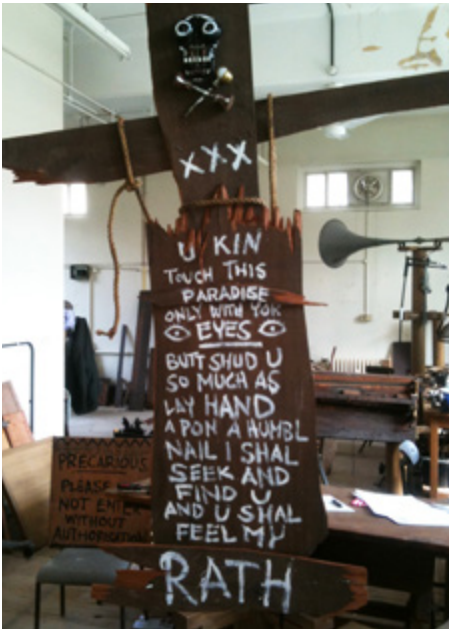 XXX
U KIN
TOUCH THIS
PARADISE
ONLY WITH YOR
EYES
BUTT SHUD U
SO MUCH AS
LAY HAND
APON A HUMBL
NAIL I SHAL
SEEK AND
FIND U
AND U SHAL
FEEL MY
RATH
PRECARIOUS
PLEASE
NOT ENTER
WITHOUT
AUTHORISATION